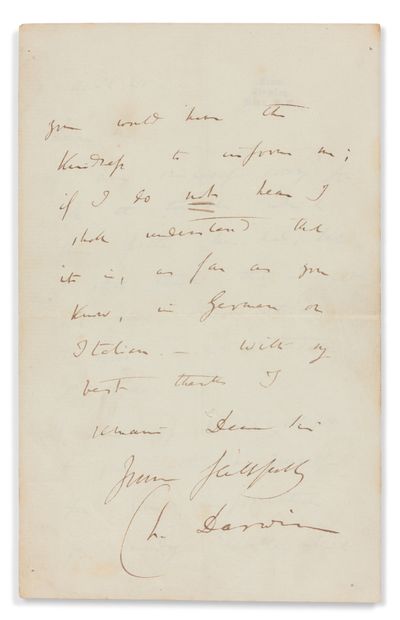 you would have the
kindness to inform me;
if I do not hear I
shall understand that
it is, as far as you
know, in German or
Italian. — With my
best thanks I
remain Dear Sir
Yours faithfully
Ch. Darwin